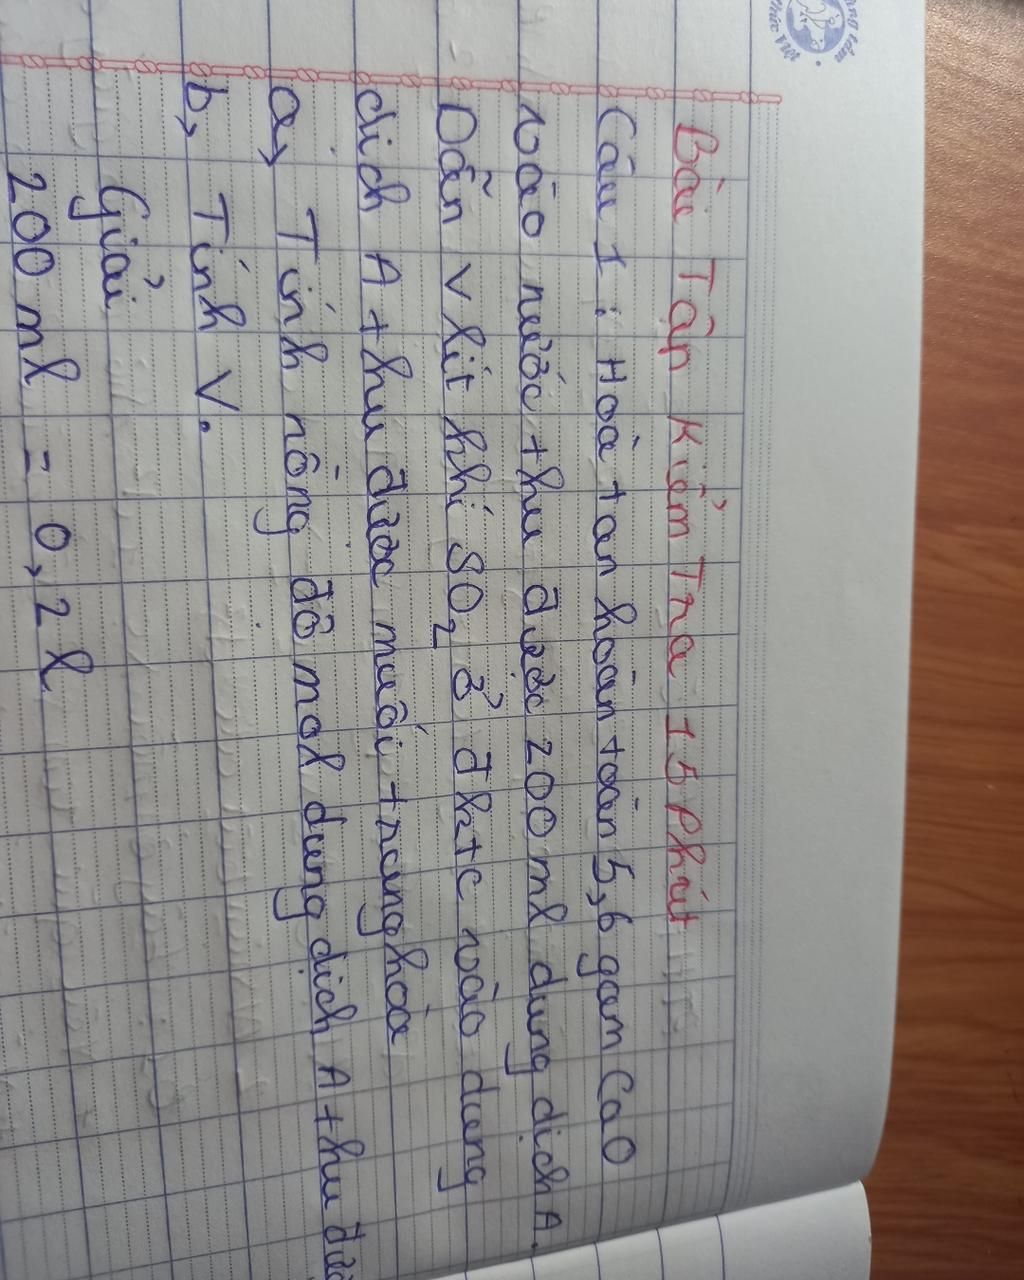 Bài Tập Kiểm Tra 15 Phút
Câu 1: Hoà tan hoàn toàn 5,6 gam CaO
vào nước thu được 200 ml dung dịch A.
Dẫn V lít khí SO2 ở đktc vào dung
dịch A thu được muối trung hòa
a, Tính nồng độ mol dung dịch A thu
b, Tính V.
Giải
200 ml = 0,2 l